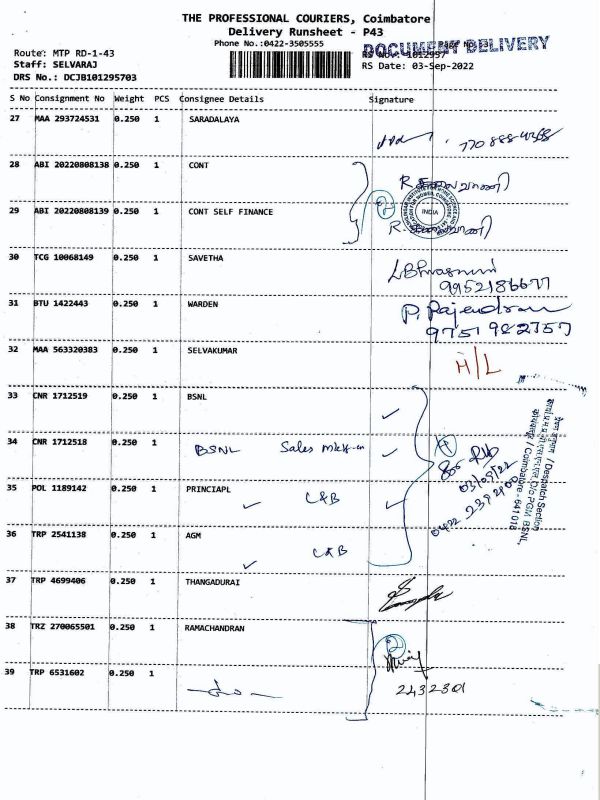 THE PROFESSIONAL COURIERS, Coimbatore
Delivery Runsheet - P43
Phone No.:0422-3505555
DOCUMENT DELIVERY
Route: MTP RD-1-43
Staff: SELVARAJ
RS Date: 03-Sep-2022
DRS No.: DCJB101295703
S No Consignment No Weight PCS Consignee Details Signature
27 MAA 293724531 0.250 1 SARADALAYA
28 ABI 20220808138 0.250 1 CONT
29 ABI 20220808139 0.250 1 CONT SELF FINANCE
INDIA
30 TCG 10068149 0.250 1 SAVETHA
9952186677
31 BTU 1422443 0.250 1 WARDEN P. Rajendran
9751982757
32 MAA 563320383 0.250 1 SELVAKUMAR H/L
33 CNR 1712519 0.250 1 BSNL
34 CNR 1712518 0.250 1 BSNL Sales
03/09/22
35 POL 1189142 0.250 1 PRINCIAPL C&B
36 TRP 2541138 0.250 1 AGM C&B
/ Despatch Section
O/o PGM BSNL,
/ Coimbatore - 641 018
37 TRP 4699406 0.250 1 THANGADURAI
38 TRZ 270065501 0.250 1 RAMACHANDRAN
39 TRP 6531602 0.250 1 —do—
2432301